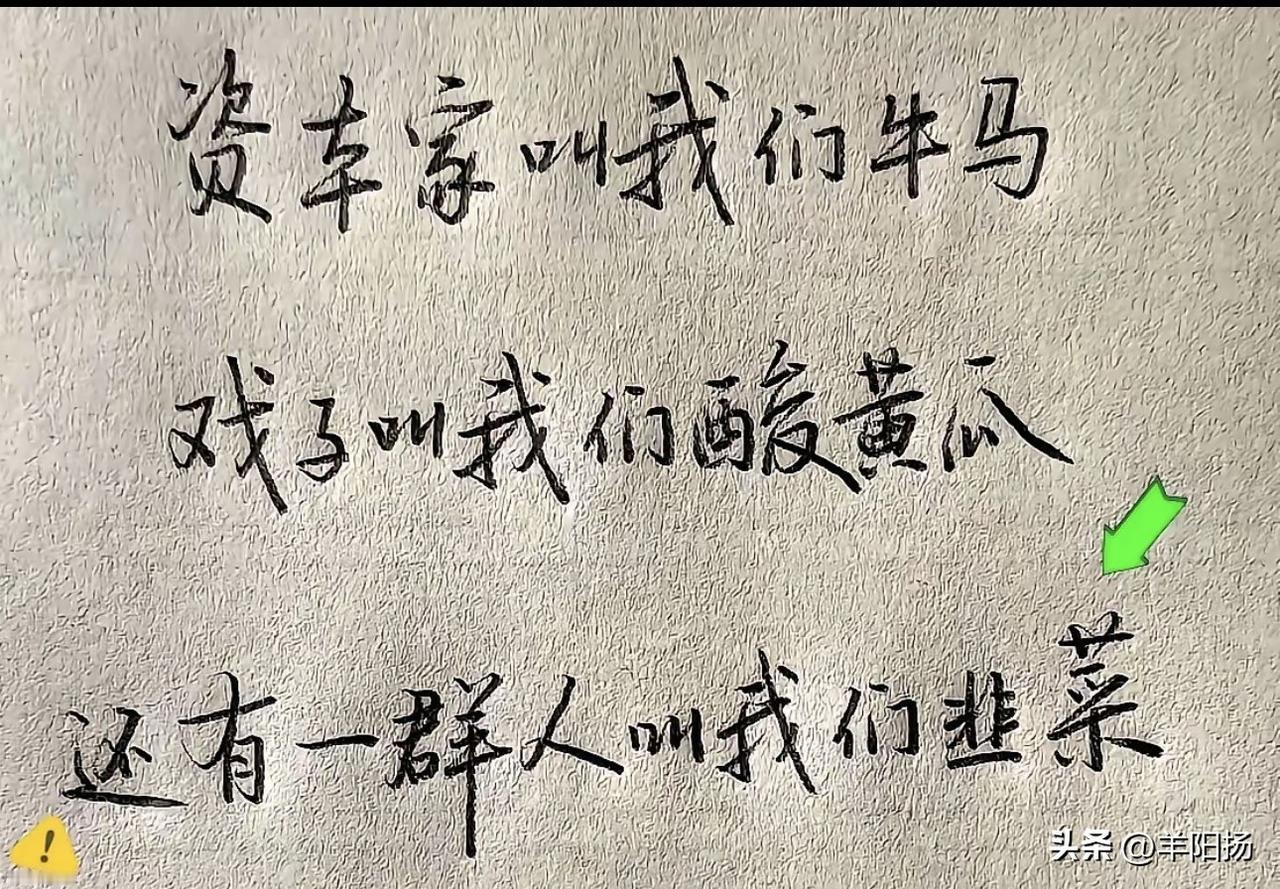 资本家叫我们牛马
戏子叫我们酸黄瓜
还有一群人叫我们韭菜
!
头条 @羊阳扬